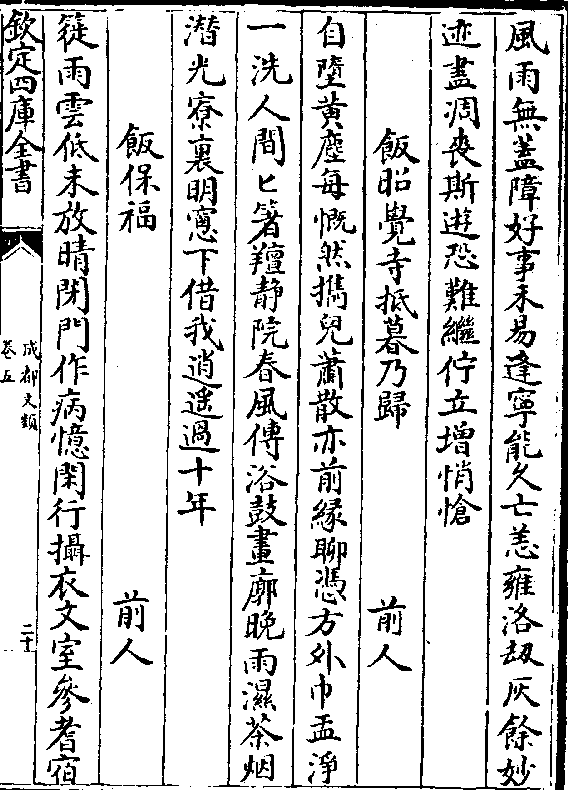 風雨無蓋障好事未易逢寧能久亡恙雍洛刼灰餘妙
迹盡凋喪斯遊恐難繼佇立增悄愴
飯昭覺寺抵暮乃歸 前人
自墮黄塵每慨然擕兒蕭散亦前緣聊憑方外巾盂淨
一洗人間匕箸羶静院春風傳浴鼓畫廓晚雨濕茶烟
潜光寮裏明窻下借我逍遥過十年
飯保福 前人
簁雨雲低未放晴閉門作病憶閑行攝衣文室參耆宿
欽定四庫全書
成都文類
卷五
二十